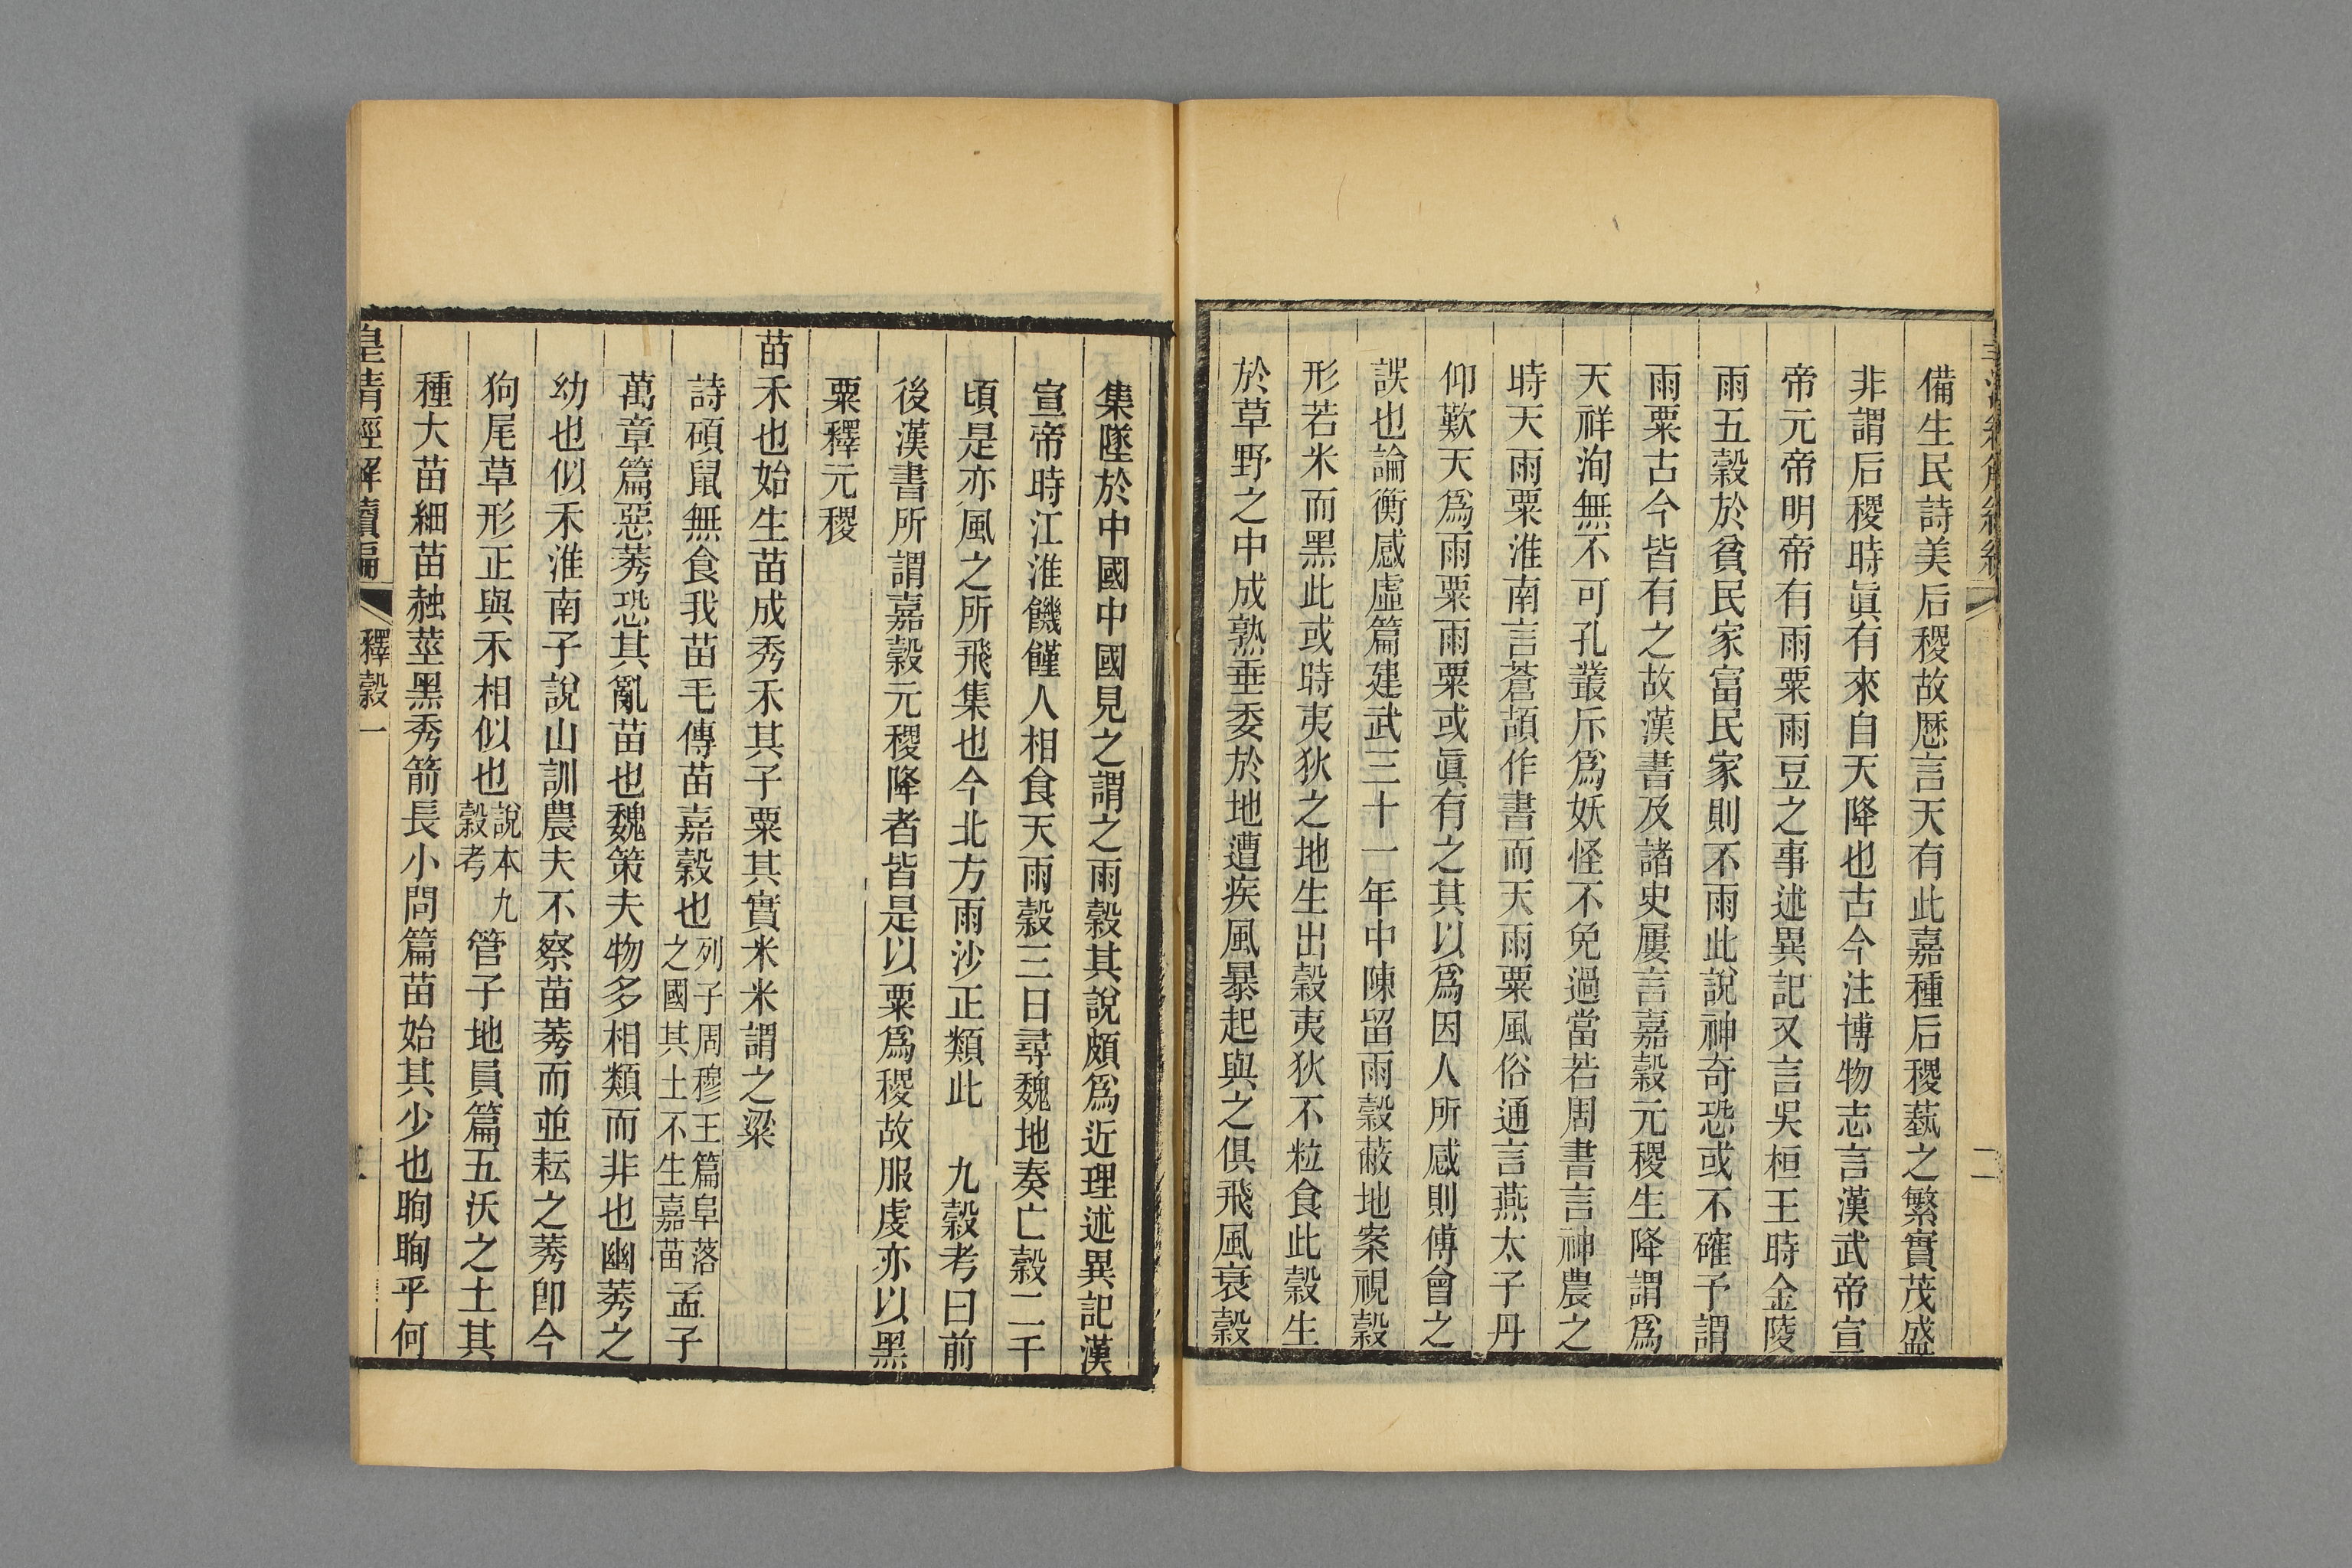 備生民詩美后稷故厯言天有此嘉種后稷蓺之繁實茂盛
非謂后稷時眞有來自天降也古今注博物志言漢武帝宣
帝元帝明帝有雨粟雨豆之事述異記又言吳桓王時金陵
雨五穀於貧民家富民家則不雨此說神奇恐或不確予謂
雨粟古今皆有之故漢書及諸史屢言嘉穀元稷生降謂爲
天祥洵無不可孔叢斥爲妖怪不免過當若周書言神農之
時天雨粟淮南言蒼頡作書而天雨粟風俗通言燕太子丹
仰歎天爲雨粟雨粟或眞有之其以爲因人所感則傅會之
誤也論衡感虛篇建武三十一年中陳留雨穀蔽地案視穀
形若米而黑此或時夷狄之地生出穀夷狄不粒食此穀生
於草野之中成熟垂委於地遭疾風暴起與之俱飛風衰穀
二
集墜於中國中國見之謂之雨穀其說頗爲近理述異記漢
宣帝時江淮饑饉人相食天雨穀三日尋魏地奏亡穀二千
頃是亦風之所飛集也今北方雨沙正類此　九穀考曰前
後漢書所謂嘉穀元稷降者皆是以粟爲稷故服虔亦以黑
粟釋元稷
苗禾也始生苗成秀禾其子粟其實米米謂之粱
詩碩鼠無食我苗毛傳苗嘉穀也列子周穆王篇阜落之國其土不生嘉苗孟子
萬章篇惡莠恐其亂苗也魏策夫物多相類而非也幽莠之
幼也似禾淮南子說山訓農夫不察苗莠而並耘之莠卽今
狗尾草形正與禾相似也說本九穀考管子地員篇五沃之土其
種大苗細苗赨莖黑秀箭長小問篇苗始其少也眴眴乎何
皇清經解續編　釋穀一